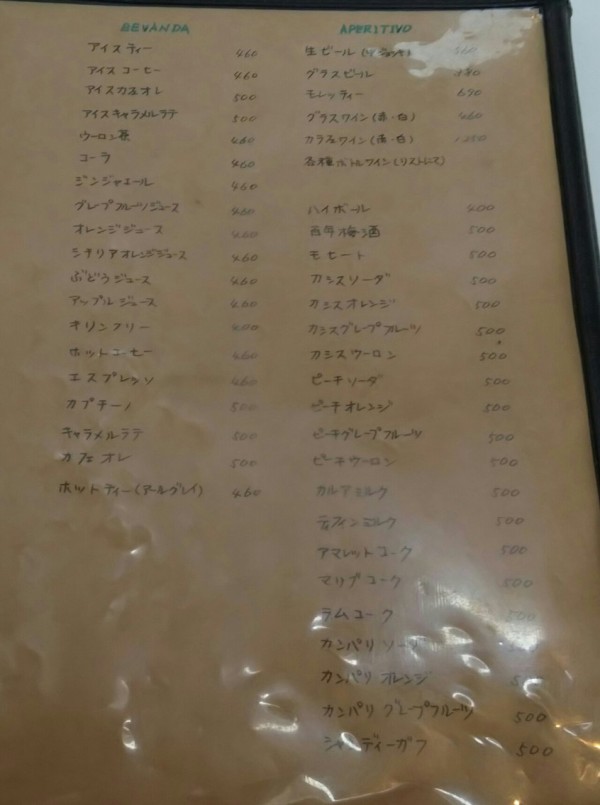 BEVANDA
アイスティー 460
アイスコーヒー 460
アイスカフェオレ 500
アイスキャラメルラテ 500
ウーロン茶 460
コーラ 460
ジンジャエール 460
グレープフルーツジュース 460
オレンジジュース 460
シチリアオレンジジュース 460
ぶどうジュース 460
アップルジュース 460
キリンフリー 400
ホットコーヒー 460
エスプレッソ 460
カプチーノ 500
キャラメルラテ 500
カフェオレ 500
ホットティー(アールグレイ) 460
APERITIVO
生ビール 560
グラスビール
モレッティー 690
グラスワイン(赤・白) 460
カラフェワイン(赤・白) 1250
各種ボトルワイン(リストにて)
ハイボール 400
百年梅酒 500
モヒート 500
カシスソーダ 500
カシスオレンジ 500
カシスグレープフルーツ 500
カシスウーロン 500
ピーチソーダ 500
ピーチオレンジ 500
ピーチグレープフルーツ 500
ピーチウーロン 500
カルアミルク 500
ティフィンミルク 500
アマレットコーク 500
マリブコーク 500
ラムコーク 500
カンパリ ソーダ
カンパリ オレンジ
カンパリ グレープフルーツ 500
シャンディーガフ 500